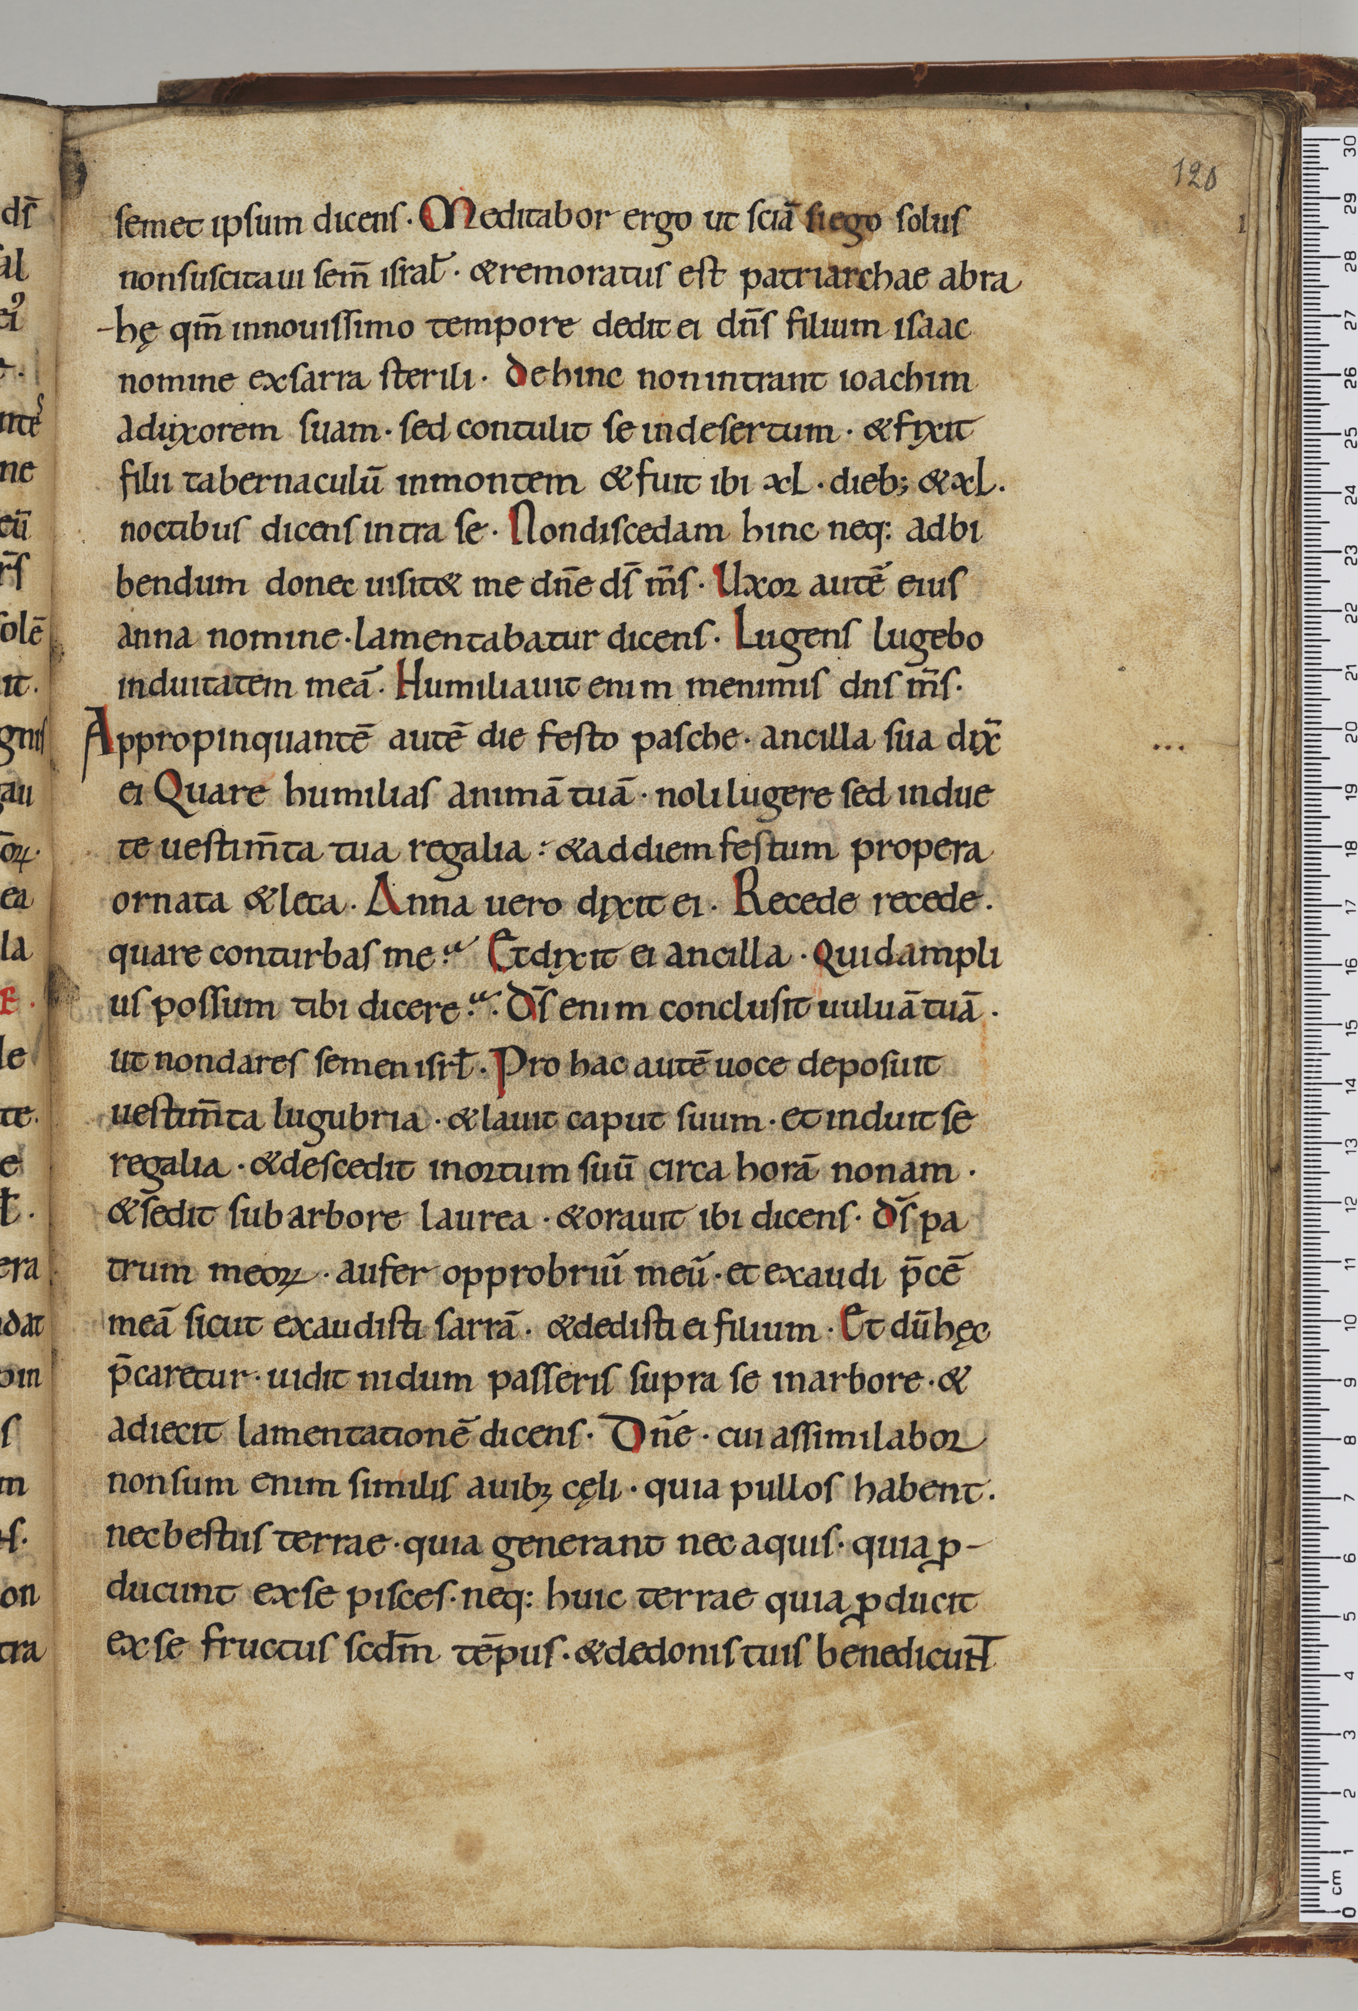 120
semet ipsum dicens · Meditabor ergo ut sciā si ego solus
non suscitaui sem̄ israł · & remoratus est patriarchae abra
-hę qm̄ in nouissimo tempore dedit ei dn̄s filium isaac
nomine ex sarra sterili · De hinc non intrant ioachim
ad uxorem suam · sed contulit se in desertum · & fixit
filii tabernaculū in montem & fuit ibi xl · dieb; & xl.
noctibus dicens intra se · Non discedam hinc neq: ad bi
bendum donec uisit& me dn̄e ds̄ m̄s · Uxor autē eius
anna nomine · lamentabatur dicens · Lugens lugebo
induitatem meā · Humiliauit enim me nimis dns m̄s ·
Appropinquantē autē die festo pasche · ancilla sua dix̄
ei Quare humilias animā tuā · noli lugere sed indue
te uestim̄ta tua regalia : & ad diem festum propera
ornata & leta · Anna uero dixit ei · Recede recede ·
quare conturbas me ? Et dixit ei ancilla · Quid ampli
us possum tibi dicere ? Ds̄ enim conclusit uuluā tuā ·
ut non dares semen isrł · Pro hac autē uoce deposuit
uestim̄ta lugubria · & lauit caput suum · et induit se
regalia · & descedit in ortum suū circa horā nonam ·
& sedit sub arbore laurea · & orauit ibi dicens · Ds̄ pa
trum meoꝝ · aufer opprobriū meū · et exaudi p̄cē
meā sicut exaudisti sarrā · & dedisti ei filium · Et dū hęc
p̄caretur · uidit nidum passeris supra se in arbore · &
adiecit lamentationē dicens · Dn̄e · cui assimilabor
non sum enim similis auibꝫ cęli · quia pullos habent ·
nec bestiis terrae · quia generant nec aquis · quia ꝓ-
ducunt ex se pisces · neq: huic terrae quia ꝓducit
ex se fructus scdm̄ tēpus · & de donis tuis benedicuN̄T